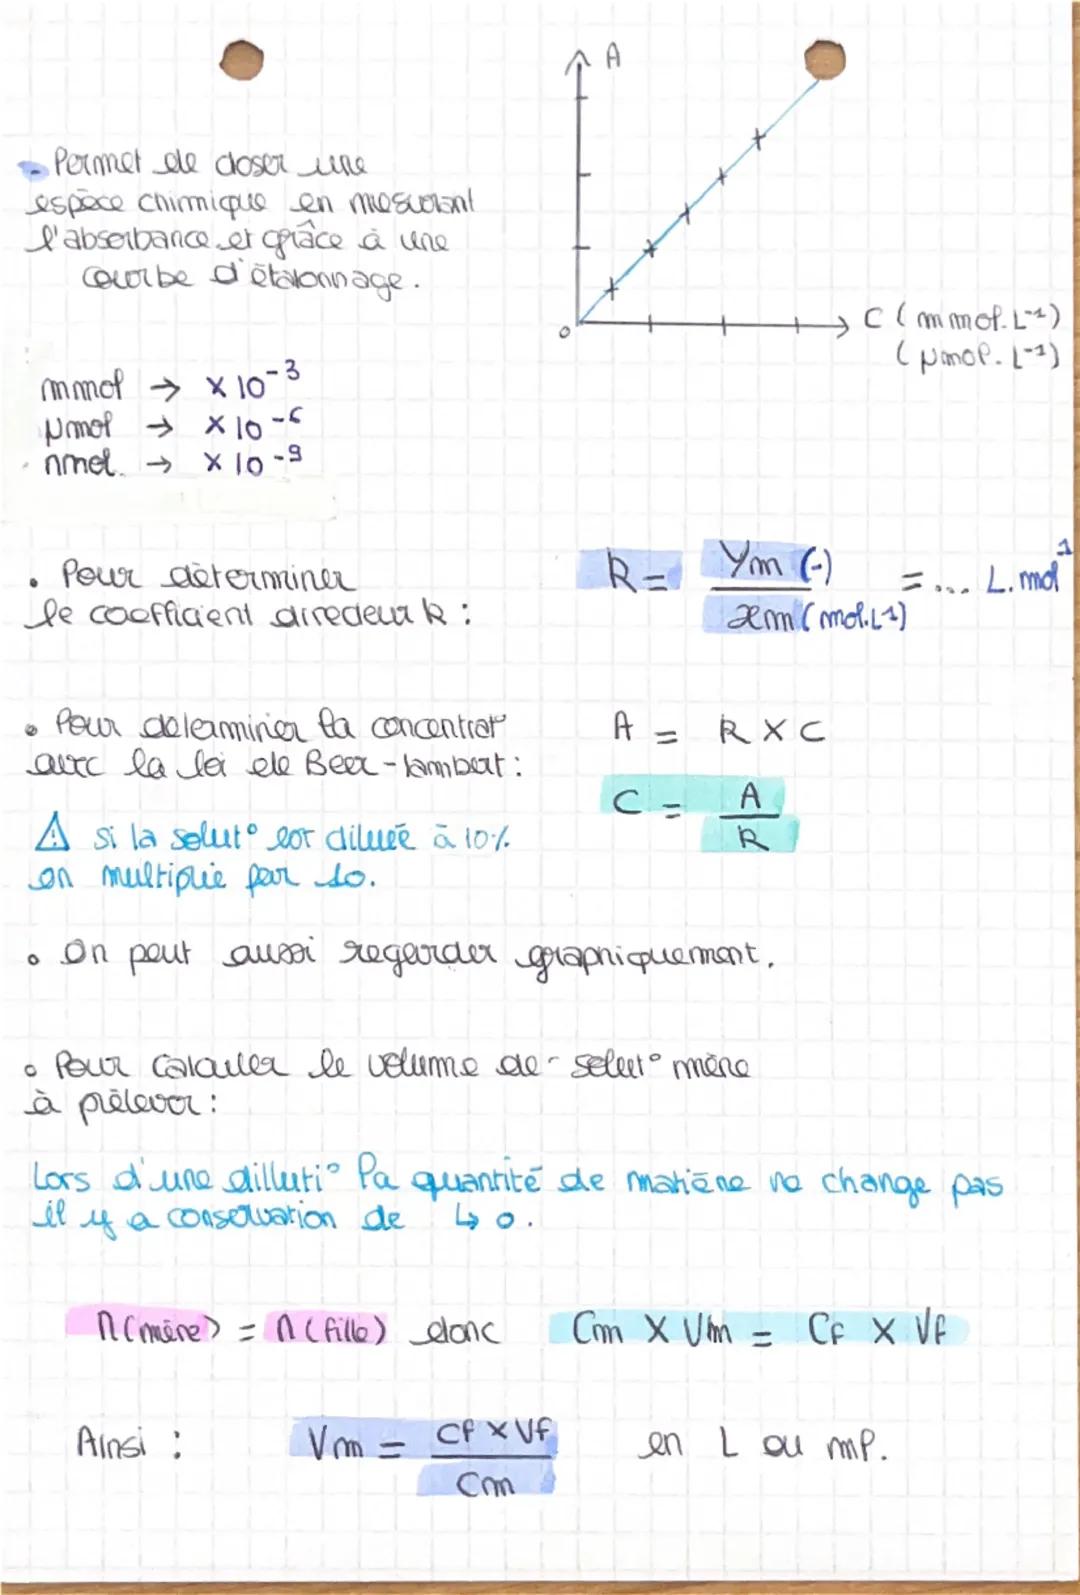 A
- Permet de doser une
espèce chimique en mesurant
l'absorbance et grâce à une
courbe d'étalonnage.
0
C (mmol.L⁻¹)
(µmol.L⁻¹)
mmol → × 10⁻³
µmol → × 10⁻⁶
nmol → × 10⁻⁹
• Pour déterminer
le coefficient directeur k :
k = Ym (-) / xm (mol.L⁻¹) = ... L.mol⁻¹
• Pour déterminer la concentrat°
avec la loi de Beer-lambert :
A = k × C
C = A / k
⚠ si la solut° est diluée à 10%
on multiplie par 10.
• On peut aussi regarder graphiquement.
• Pour calculer le volume de solut° mère
à prélever :
Lors d'une dilluti° la quantité de matière ne change pas
il y a conservation de ↳ o.
n(mère) = n(fille) donc Cm × Vm = Cf × Vf
Ainsi : Vm = Cf × Vf / Cm en L ou ml.